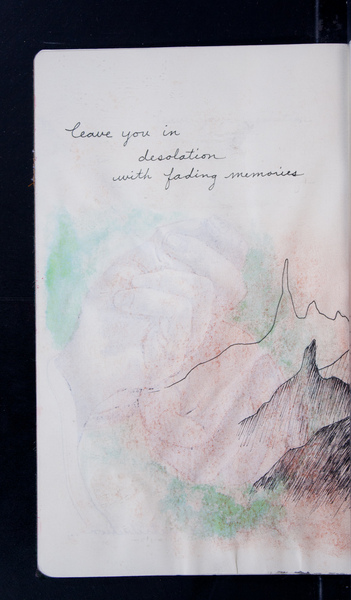 leave you in
desolation
with fading memories